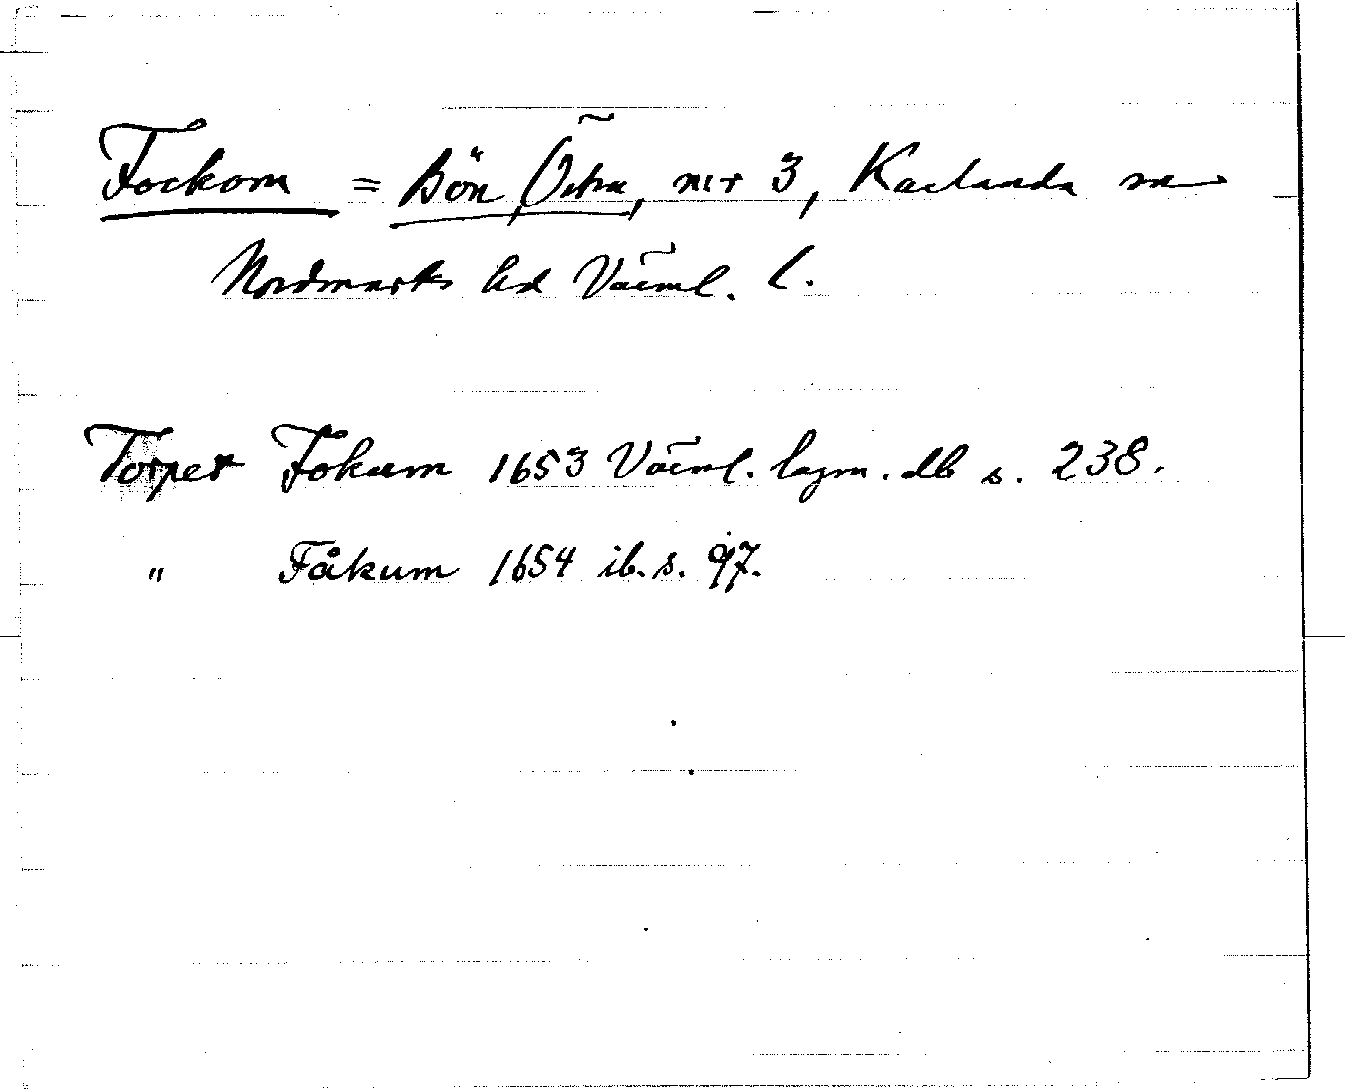 Fockom = Bön, Östra, mir 3, Karlanda sn
Nordmarks hd Värml. l.
Torpet Fokum 1653 Värml. lagm. db s. 238.
" Fåkum 1654 ib. s. 97.